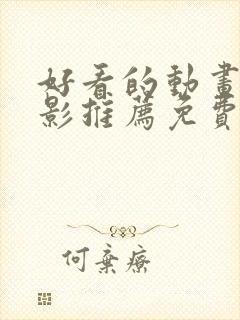 好看的動畫
影推薦免費
何棄療